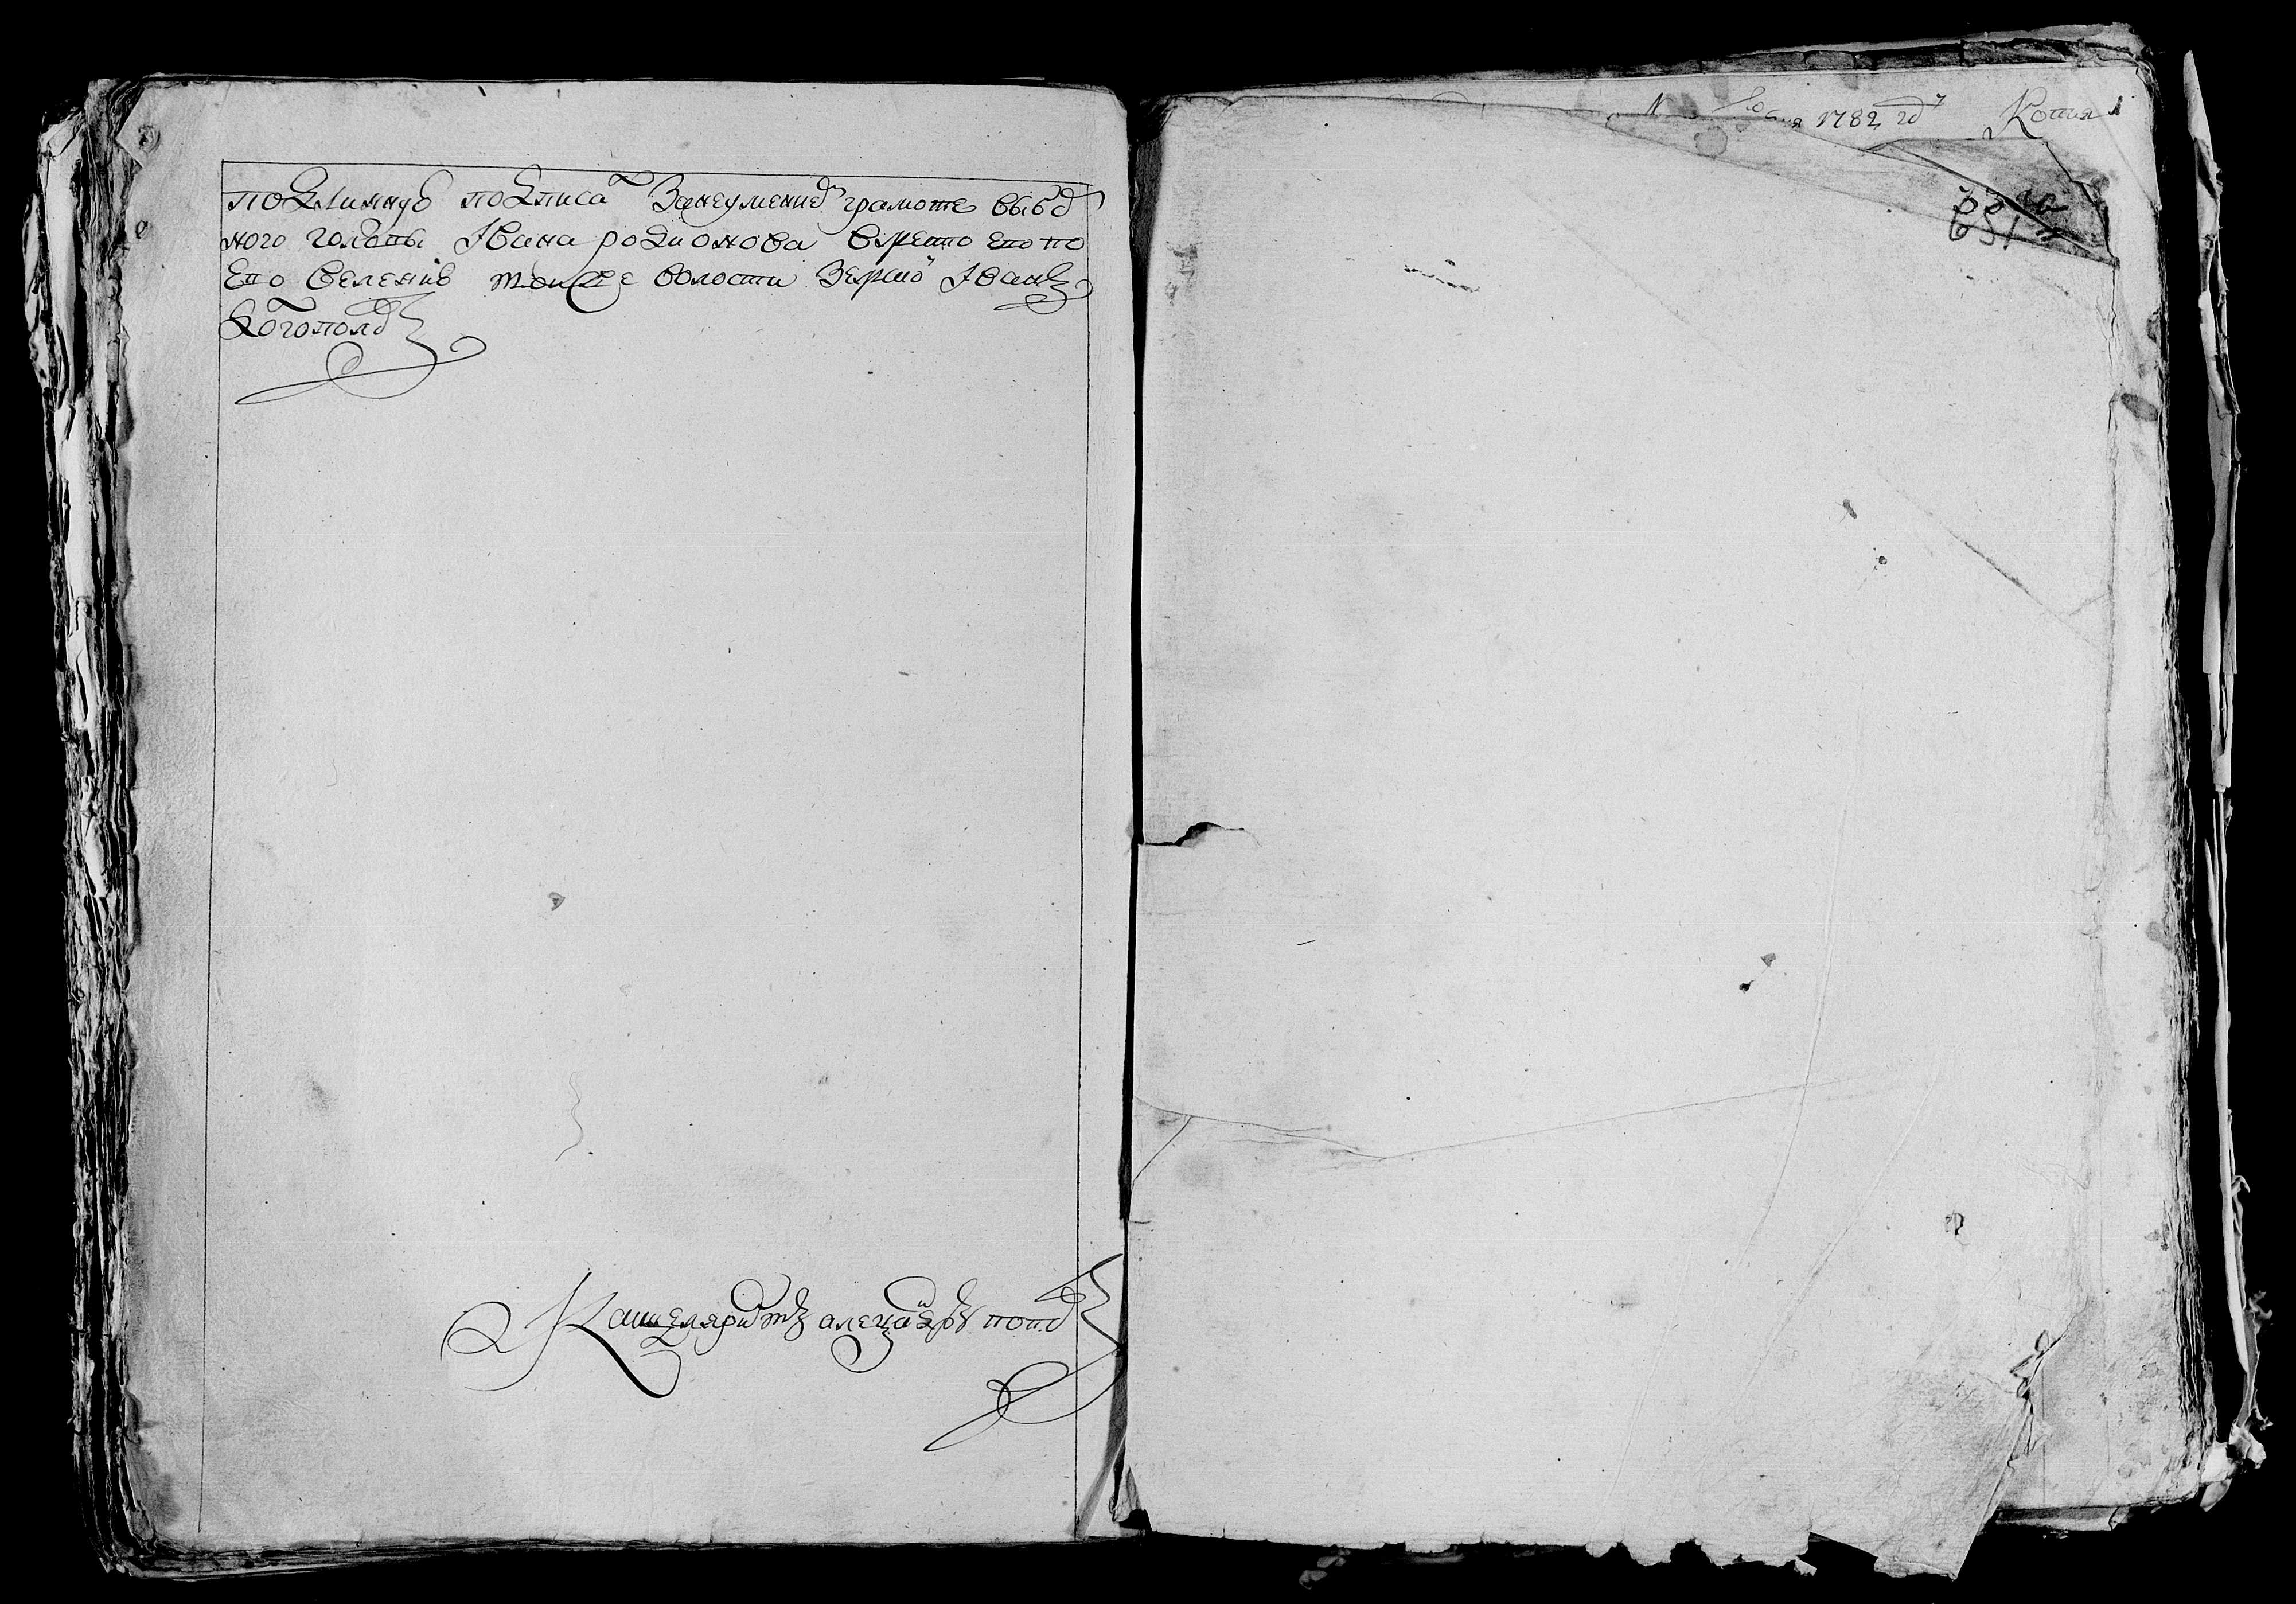 подлинную подписал Занеумением грамоте выбор
ного головы Iвана родионова вместо ево по
ево велению тоиже волости Земской Iванъ
Боголюбов
Канцеляристъ алеѯандръ попов
1782 год Копия
651